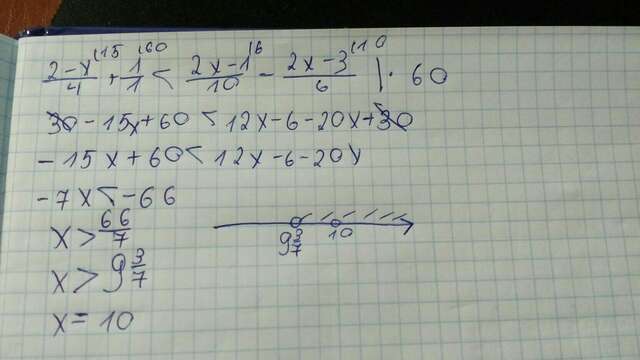 (2-x)/4 ⁽¹⁵ + 1/1 ⁽⁶⁰ < (2x-1)/10 ⁽⁶ - (2x-3)/6 ⁽¹⁰ | · 60
30 - 15x + 60 < 12x - 6 - 20x + 30
- 15x + 60 < 12x - 6 - 20x
- 7x < - 66
x > 66/7
x > 9 3/7
x = 10
9 3/7 10